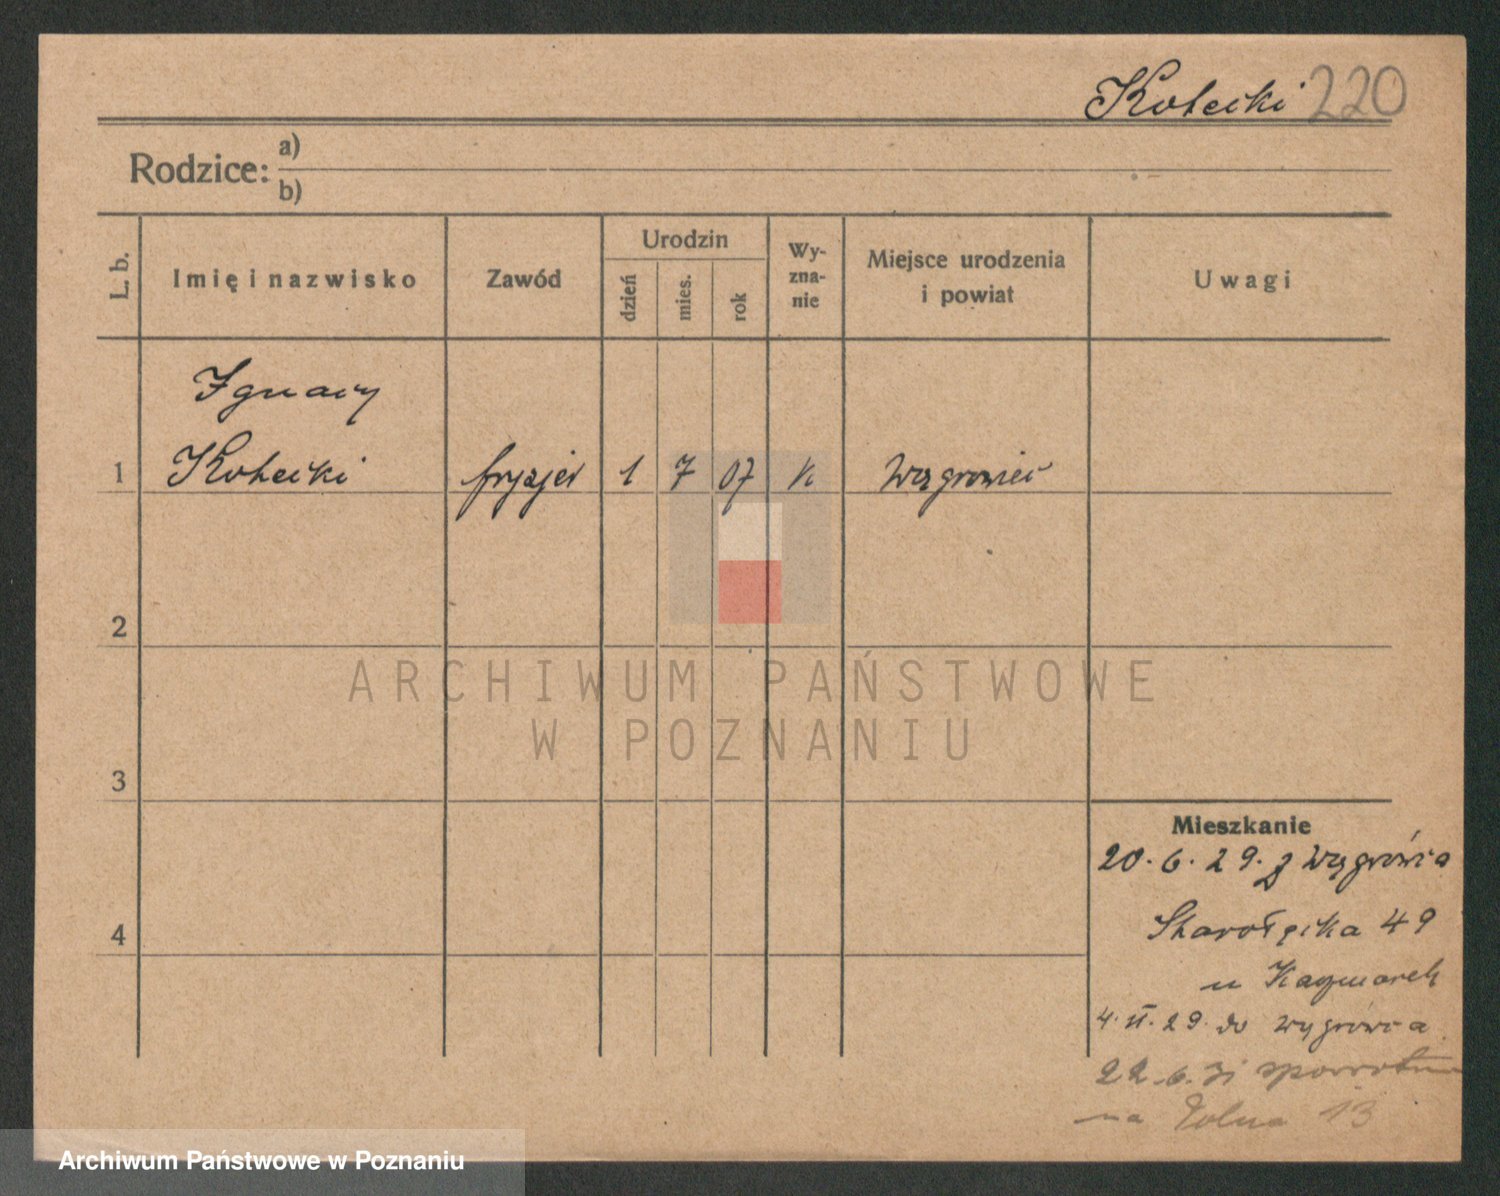 Kotecki 220
Rodzice: a)
b)
L. b.
Imię i nazwisko
Zawód
Urodzin
dzień
mies.
rok
Wy-
zna-
nie
Miejsce urodzenia
i powiat
Uwagi
Ignacy
1 Kotecki fryzjer 1 7 07 K Wągrowiec
2
3
4
Mieszkanie
20. 6. 29. z Wągrówca
Starołęcka 49
u Kaczmarek
4. 29. do Wągrówca
22. 6. 31 spowrotem
na 13
ARCHIWUM PAŃSTWOWE
W POZNANIU
Archiwum Państwowe w Poznaniu